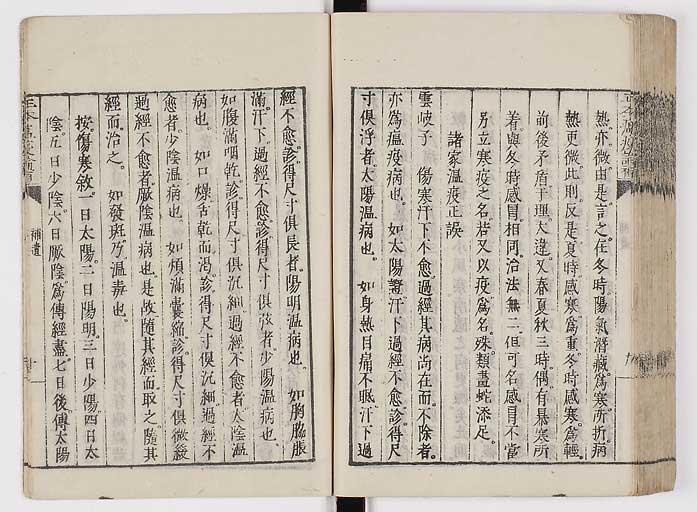 熱亦微由是言之在冬時陽氣潛藏爲寒所折病
熱更微此則反是夏時感寒爲重冬時感寒爲輕
前後矛盾于理大違又春夏秋三時偶有暴寒所
着與冬時感冒相同治法無二但可名感冒不當
另立寒疫之名若又以疫爲名殊類畫蛇添足
諸家溫疫正誤
雲岐子 傷寒汗下不愈過經其病尚在而不除者
亦爲瘟疫病也 如太陽證汗下過經不愈診得尺
寸俱浮者太陽溫病也 如身熱目痛不眠汗下過
經不愈診得尺寸俱長者陽明溫病也 如胸脇脹
滿汗下過經不愈診得尺寸俱弦者少陽溫病也
如腹滿咽乾診得尺寸俱沉細過經不愈者太陰溫
病也 如口燥舌乾而渴診得尺寸俱沉細過經不
愈者少陰溫病也 如煩滿囊縮診得尺寸俱微緩
過經不愈者厥陰溫病也是故隨其經而取之隨其
經而治之 如發斑乃溫毒也
按傷寒敘一日太陽二日陽明三日少陽四日太
陰五日少陰六日厥陰爲傳經盡七日後傳太陽
補遺